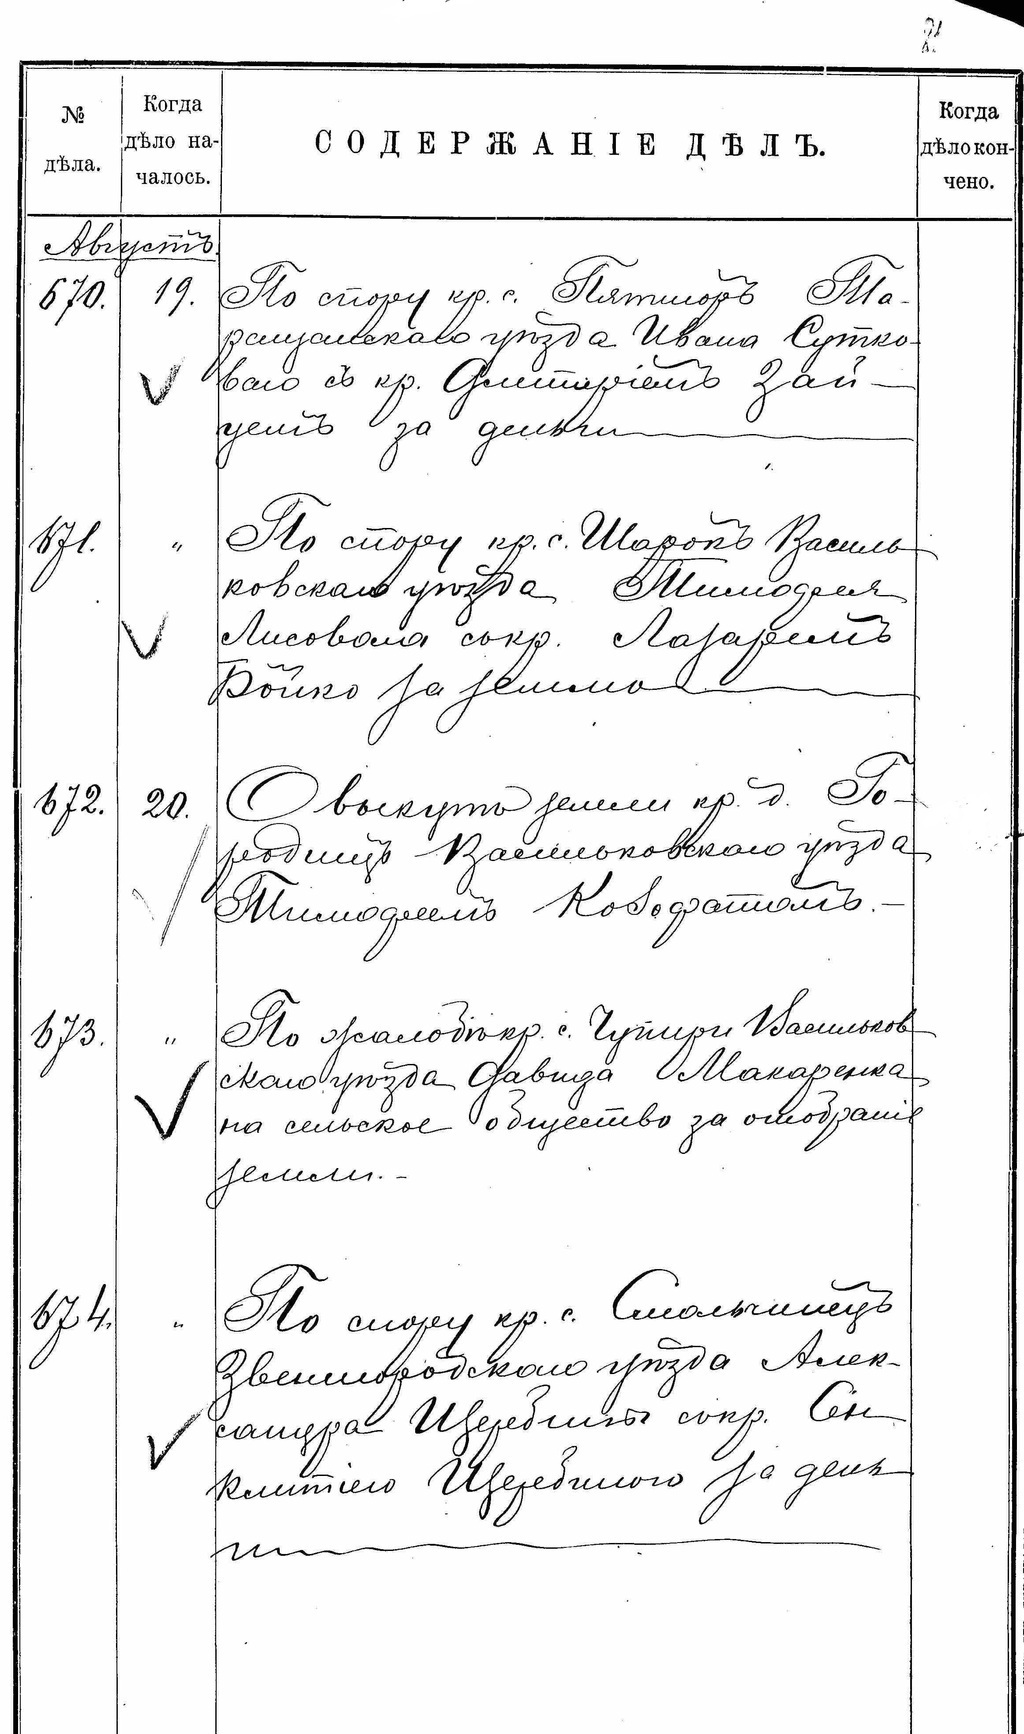 № дѣла.
Когда дѣло на-
чалось.
СОДЕРЖАНІЕ ДѢЛЪ.
Когда дѣло кон-
чено.
Августъ.
670. 19. По спору кр. с. Пятигоръ Та-
ращанскаго уѣзда Ивана Сутко-
ваго съ кр. Дмитріемъ Зай-
цемъ за деньги
671. " По спору кр. с. Шарокъ Василь
ковскаго уѣзда Тимофея
Лисовала с кр. Лазаремъ
Бойко за землю
672. 20. О выкупѣ земли кр. д. Го-
родищъ Васильковскаго уѣзда
Тимофеемъ
673. " По жалобѣ кр. с. Чупири Васильков
скаго уѣзда Давида Макаренка
на сельское общество за отобраніе
земли.-
674. " По спору кр. с. Смольчинецъ
Звенигородскаго уѣзда Алек-
сандра Щербины с кр.
Щербиною за день
ги